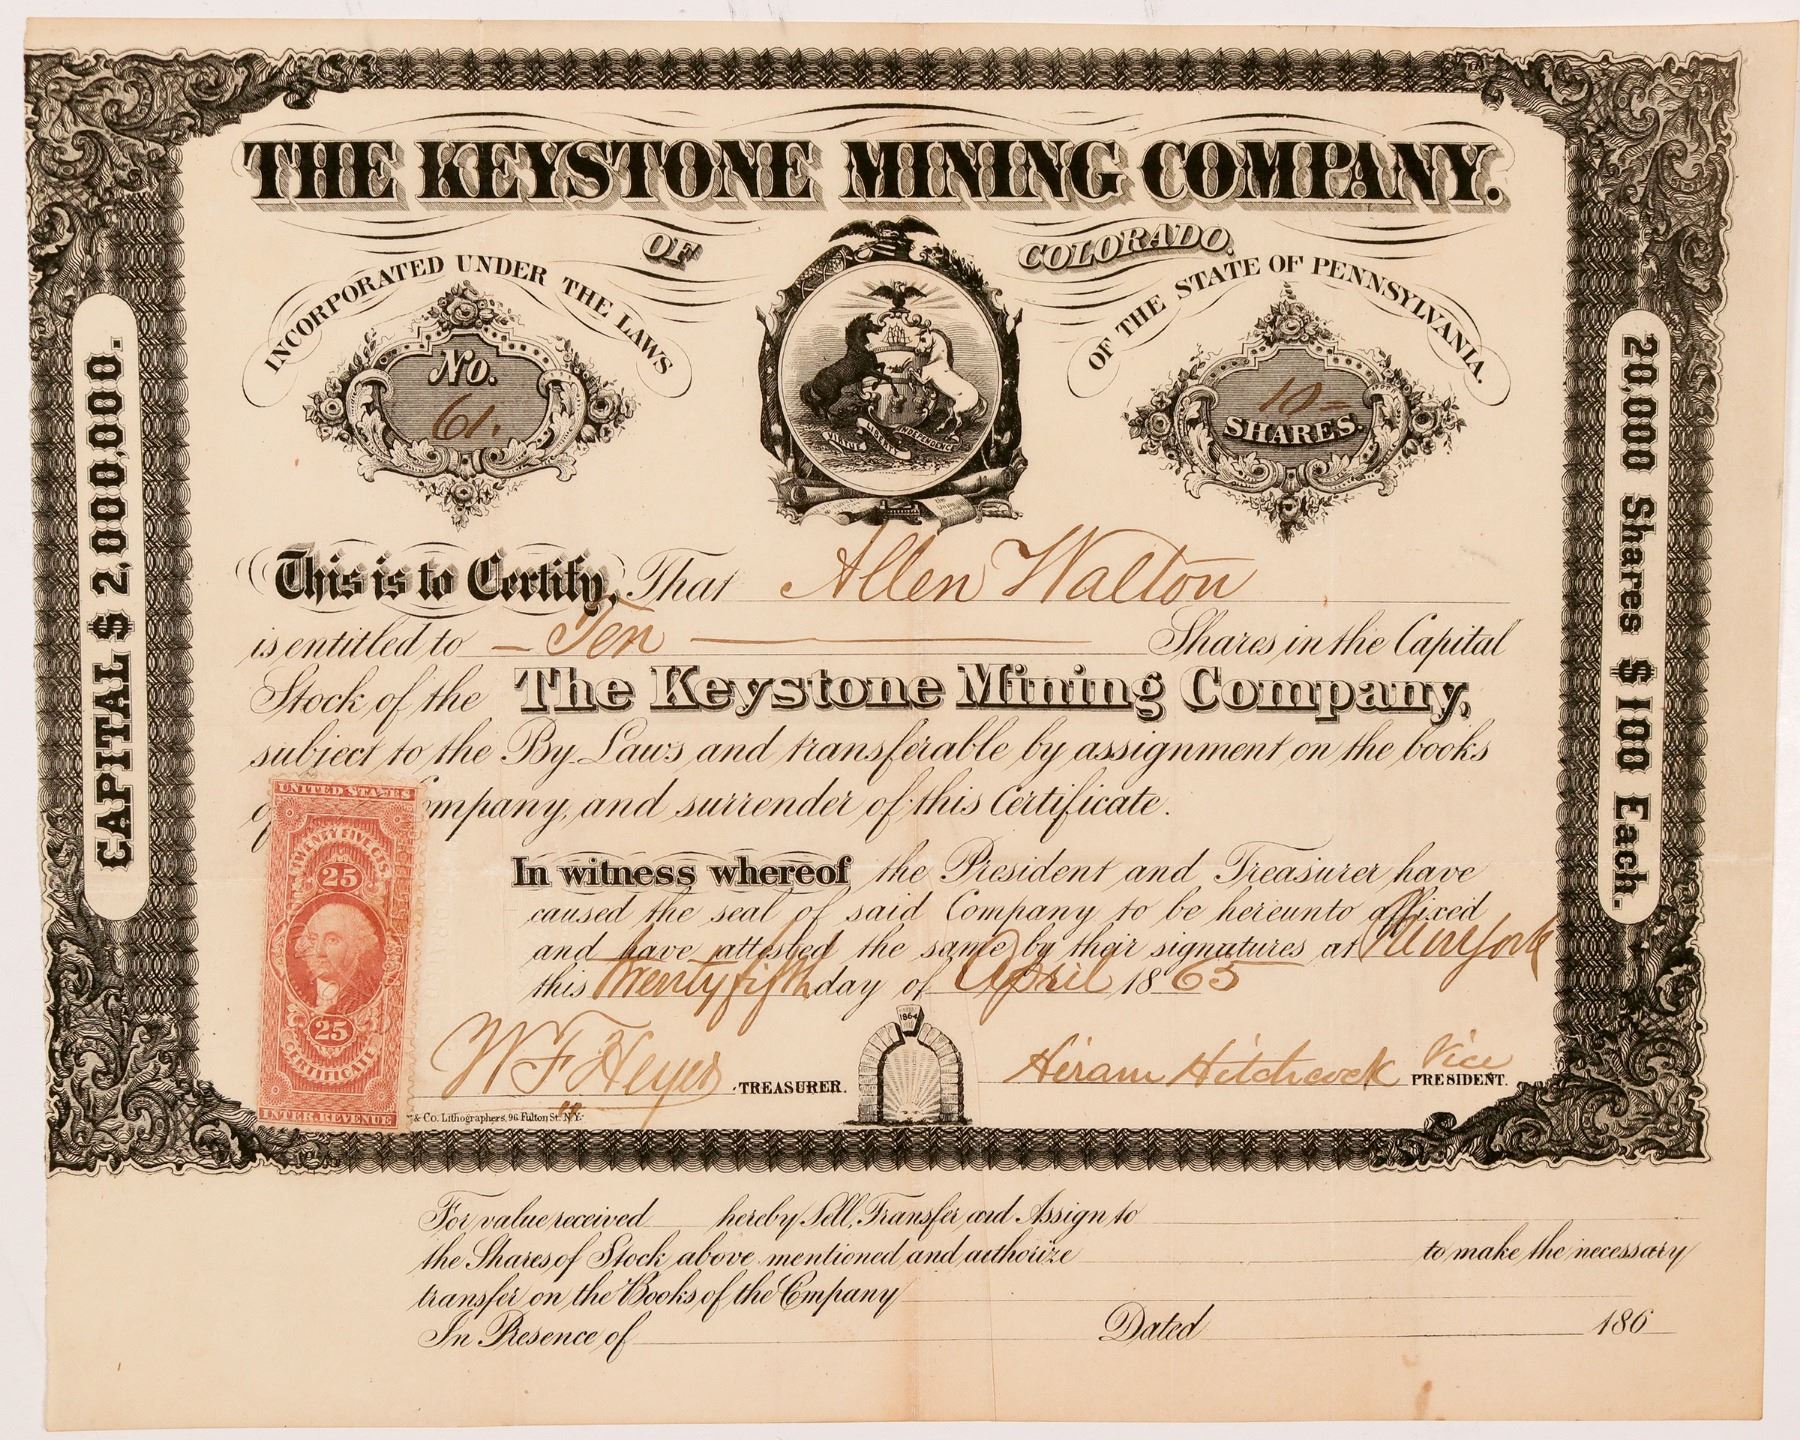 THE KEYSTONE MINING COMPANY.
OF COLORADO,
INCORPORATED UNDER THE LAWS
OF THE STATE OF PENNSYLVANIA.
No.
61.
10=
SHARES.
VIRTUE LIBERTY INDEPENDENCE
CAPITAL $ 2,000,000.
20,000 Shares $100 Each.
This is to Certify, That Allen Walton
is entitled to – Ten — Shares in the Capital
Stock of the The Keystone Mining Company,
subject to the By Laws and transferable by assignment on the books
mpany, and surrender of this Certificate.
In witness whereof the President and Treasurer have
caused the seal of said Company to be hereunto affixed
and have attested the same by their signatures at New York
this Twenty fifth day of April 1865
1864
W F Heyer TREASURER.
Hiram Hitchcock Vice PRESIDENT.
UNITED STATES
TWENTY FIVE CTS.
25
25
CERTIFICATE
INTER. REVENUE
& Co. Lithographers. 96 Fulton St. N.Y.
For value received hereby Sell, Transfer and Assign to
the Shares of Stock above mentioned and authorize to make the necessary
transfer on the Books of the Company
In Presence of Dated 186